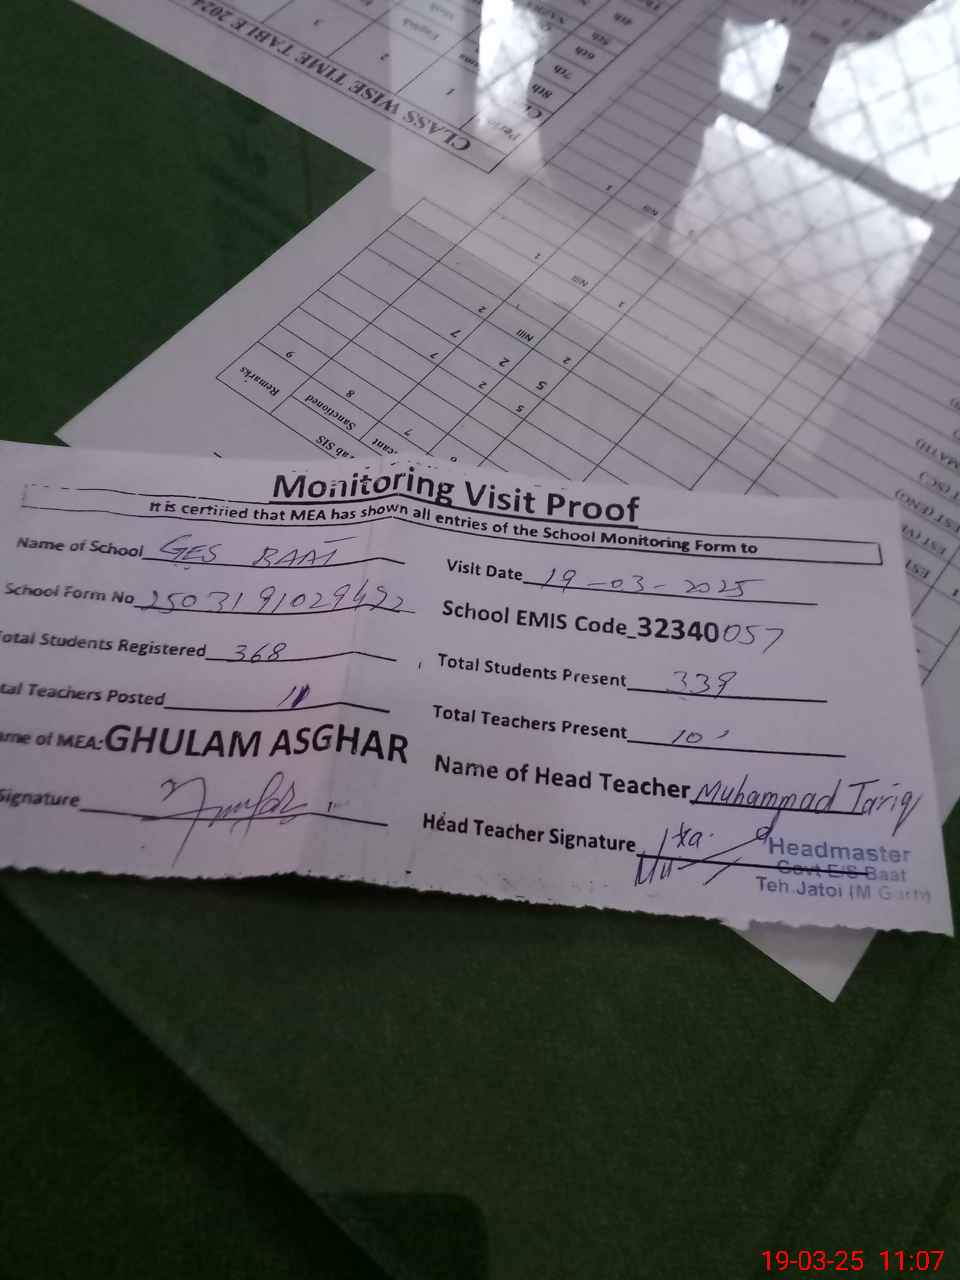 CLASS WISE TIME TABLE 2024-
8th
7th
6th
5th
4th
1
2
3
1
Nill
1
Nill
1
2
Nill
2
7
2
5
7
2
5
9
8
7
Remarks
Sanctioned
SIS
Monitoring Visit Proof
It is certified that MEA has shown all entries of the School Monitoring Form to
Name of School GES BAAT
Visit Date 19-03-2025
School Form No 2503191029492
School EMIS Code_32340057
Total Students Registered 368
Total Students Present 339
tal Teachers Posted 11
Total Teachers Present 10
ame of MEA: GHULAM ASGHAR
Name of Head Teacher Muhammad Tariq
Signature
Head Teacher Signature
Headmaster
Govt E/S Baat
Teh Jatoi (M Garh)
19-03-25 11:07